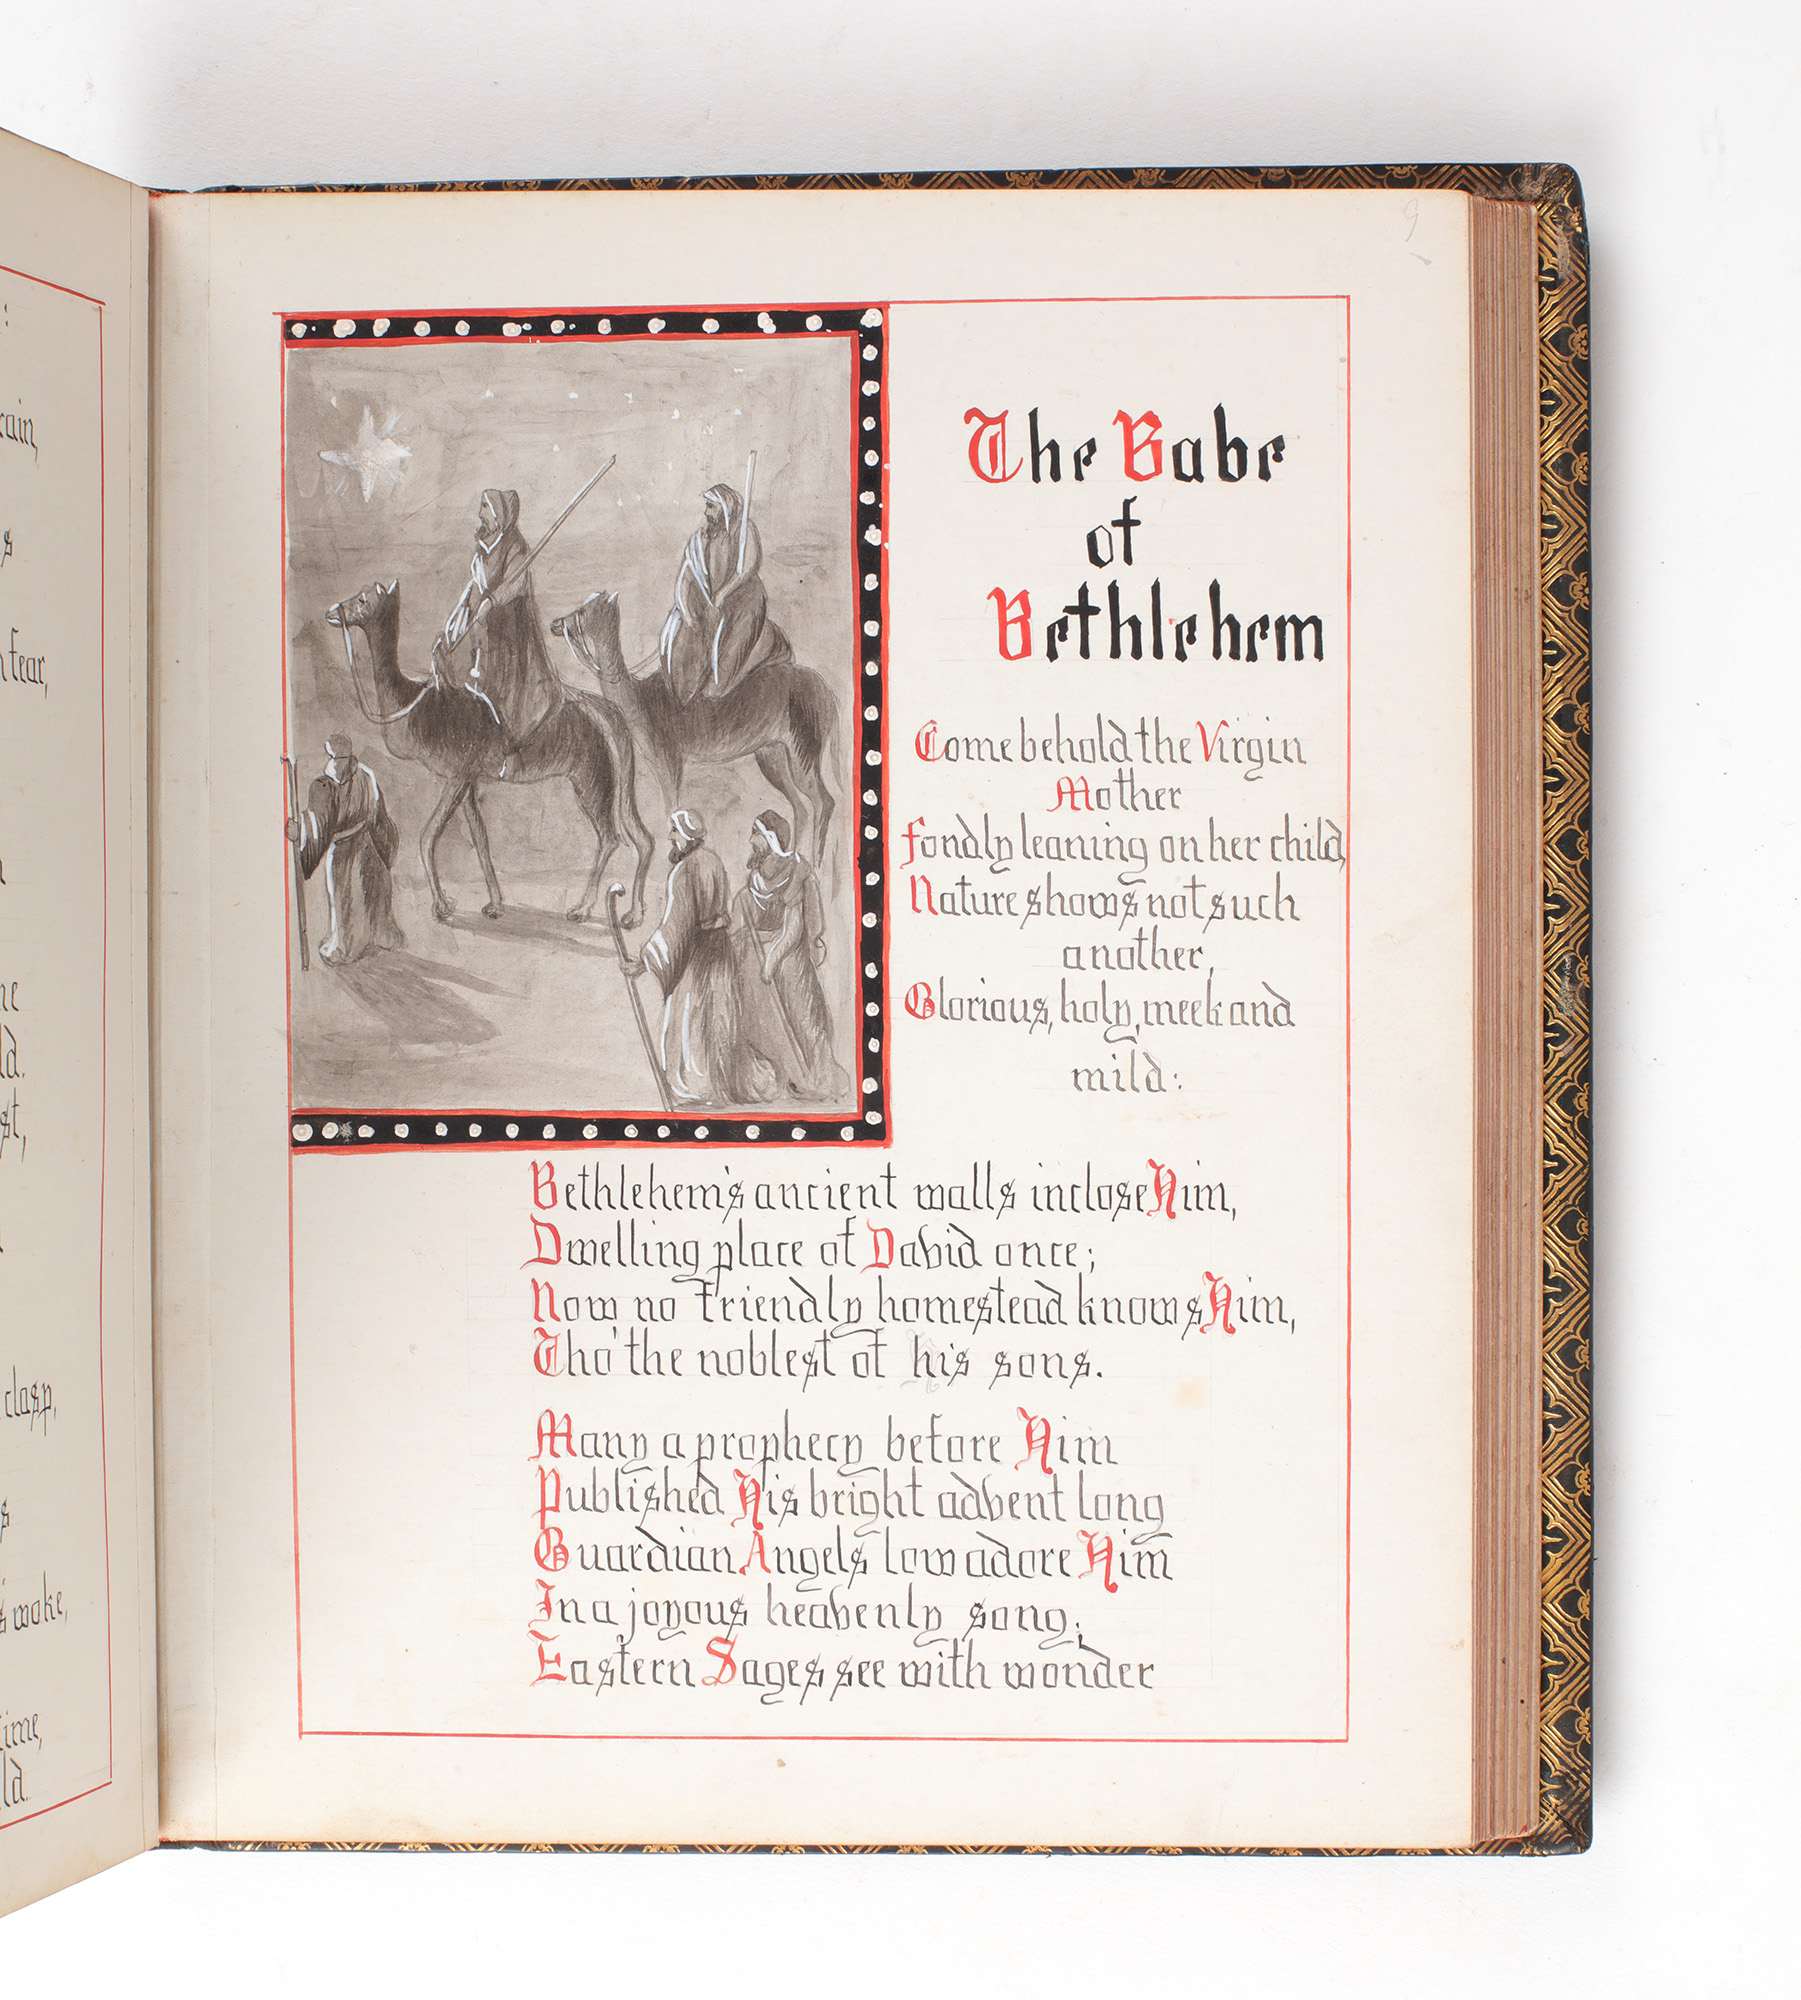 :
rain,
s
fear,
ne
ld.
st,
clasp,
s
s woke,
time,
ld.
9
The Babe
of
Bethlehem
Come behold the Virgin
Mother
Fondly leaning on her child,
Nature shows not such
another,
Glorious, holy, meek and
mild:
Bethlehem's ancient walls inclose Him,
Dwelling place of David once;
Now no friendly homestead knows Him,
Tho' the noblest of his sons.
Many a prophecy before Him
Published His bright advent long
Guardian Angels low adore Him
In a joyous heavenly song;
Eastern Sages see with wonder